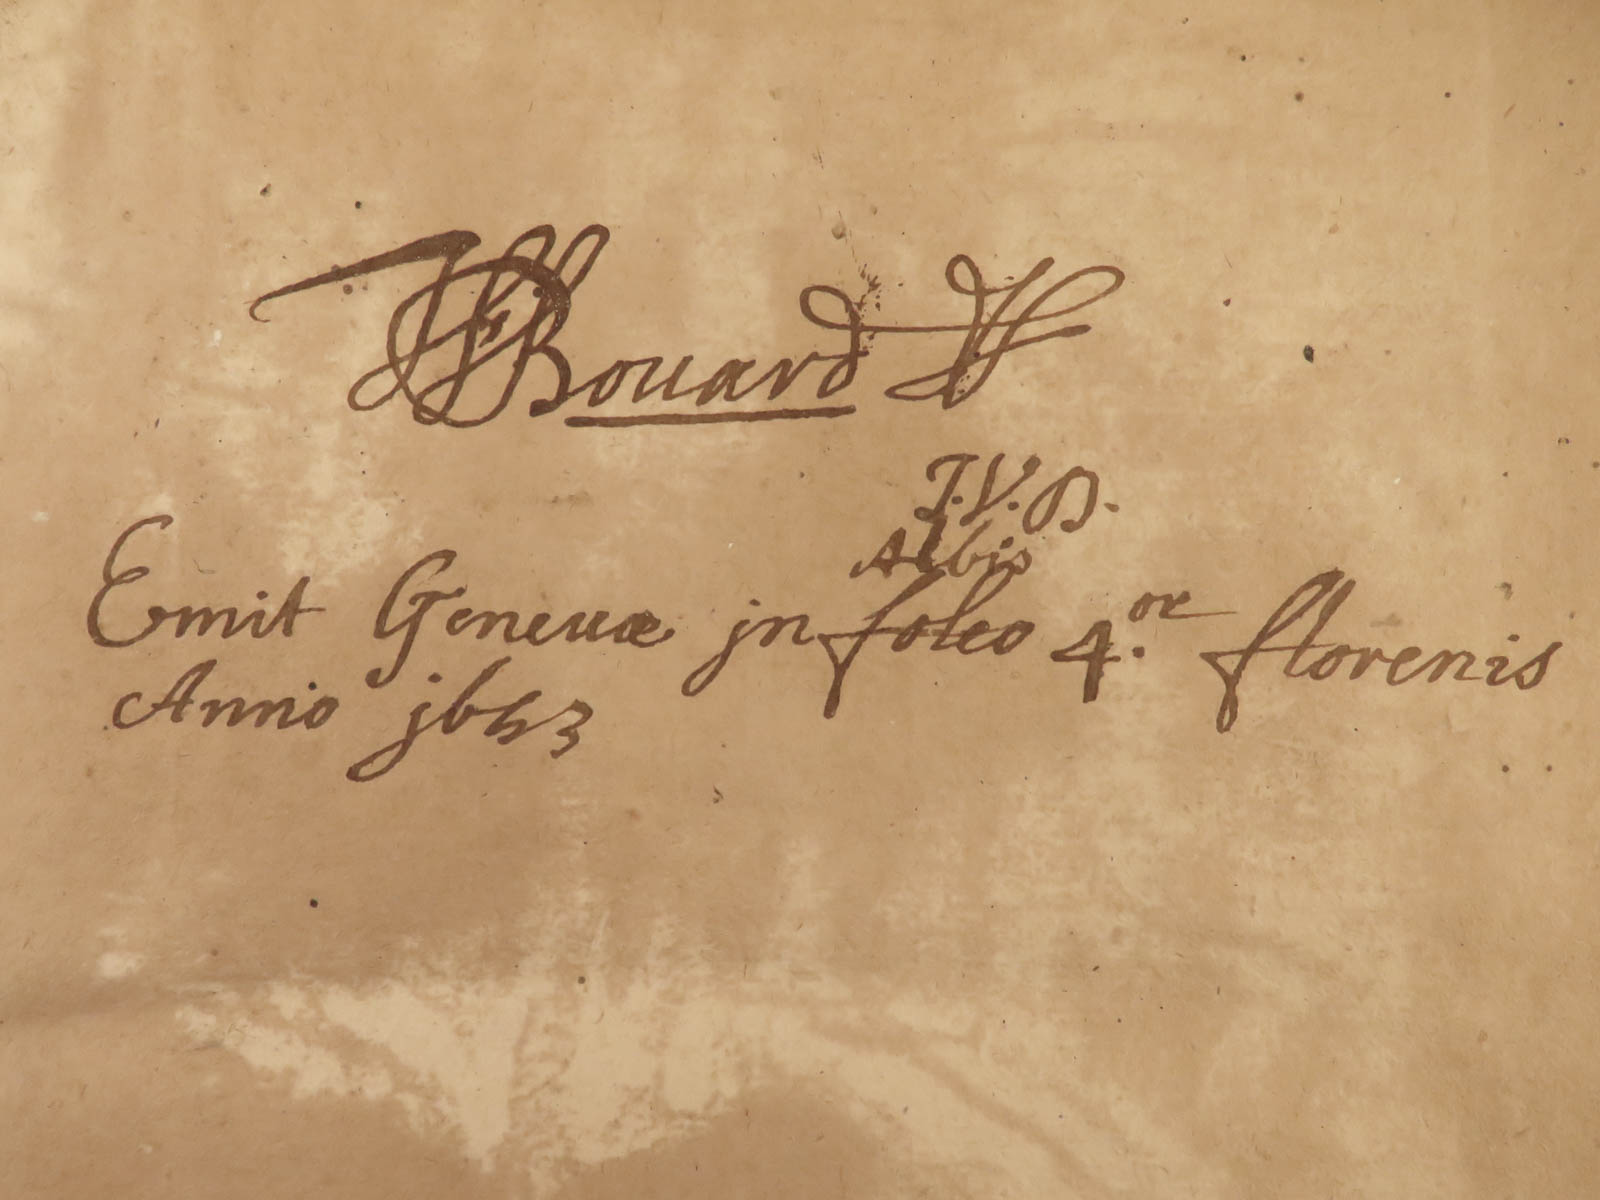 Bouard
J.V.D.
Albis
Emit Geneuæ jn foleo 4.or florenis
Anno j653